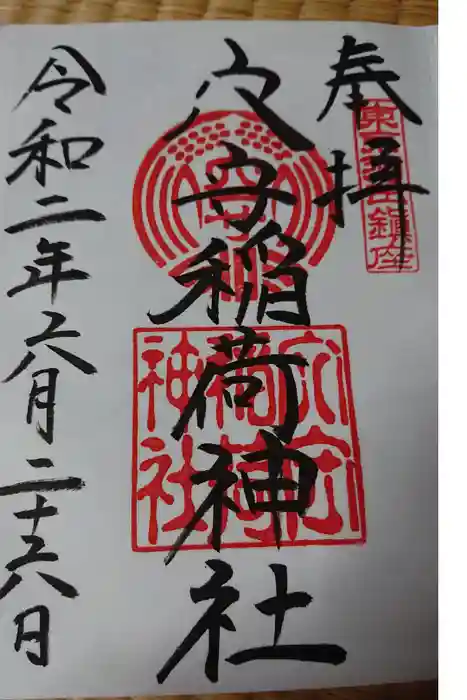 奉拝
東京羽田鎮座
穴守稲荷神社
穴守稲荷神社
令和二年六月二十六日